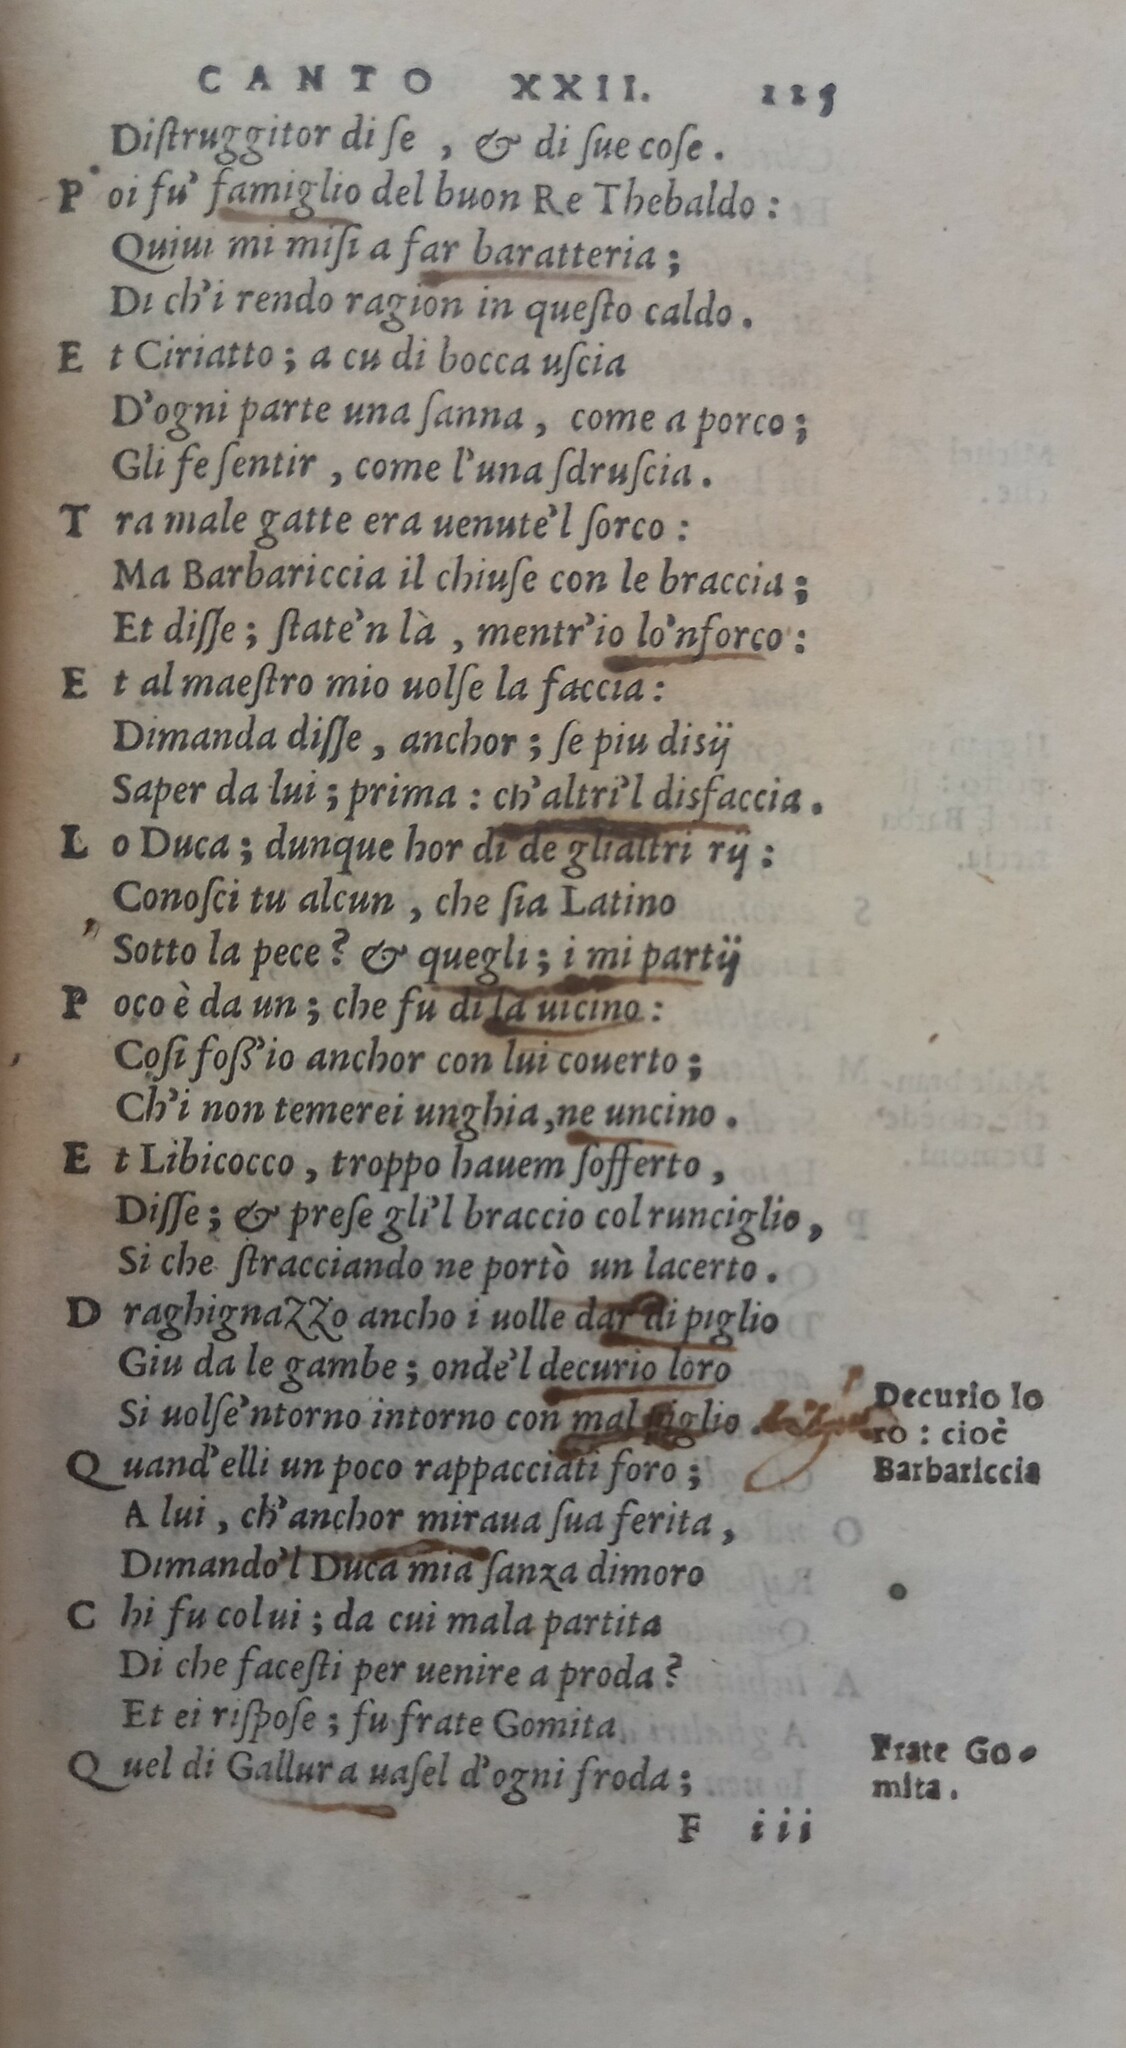 CANTO XXII. 115
Diſtruggitor di ſe, & di ſue coſe.
Poi fu' famiglio del buon Re Thebaldo:
Quiui mi miſi a far baratteria;
Di ch'i rendo ragion in queſto caldo.
Et Ciriatto; a cu di bocca uſcia
D'ogni parte una ſanna, come a porco;
Gli fe ſentir, come l'una ſdruſcia.
Tra male gatte era uenute'l ſorco:
Ma Barbariccia il chiuſe con le braccia;
Et diſſe; ſtate'n là, mentr'io lo'nforco:
Et al maeſtro mio uolſe la faccia:
Dimanda diſſe, anchor; ſe piu diſij
Saper da lui; prima: ch'altri'l disfaccia.
Lo Duca; dunque hor di de gliattri rij:
Conoſci tu alcun, che ſia Latino
Sotto la pece? & quegli; i mi partij
Poco è da un; che fu di la uicino:
Coſi foſſ'io anchor con lui couerto;
Ch'i non temerei unghia, ne uncino.
Et Libicocco, troppo hauem ſofferto,
Diſſe; & preſe gli'l braccio col runciglio,
Si che ſtracciando ne portò un lacerto.
Draghignazzo ancho i uolle dar di piglio
Giu da le gambe; onde'l decurio loro
Si uolſe'ntorno intorno con mal piglio.
Decurio lo
ro: cioè
Barbariccia
Quand'elli un poco rappacciati foro;
A lui, ch'anchor miraua ſua ferita,
Dimando'l Duca mia ſanza dimoro
Chi fu colui; da cui mala partita
Di che faceſti per uenire a proda?
Et ei riſpoſe; fu frate Gomita
Quel di Gallura uaſel d'ogni froda;
Frate Go-
mita.
F iii